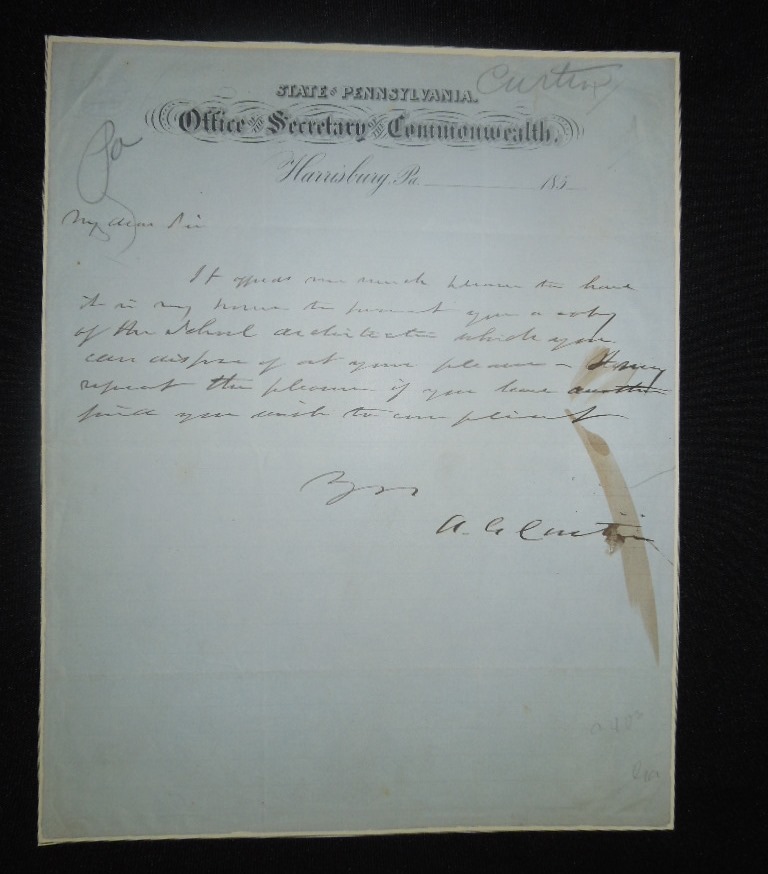 Curtin
STATE of PENNSYLVANIA.
Office of the Secretary of the Commonwealth.
Pa
Harrisburg, Pa. 185
My dear Sir
It affords me much pleasure to have
it in my power to present you a copy
of the School Architecture which you
can dispose of at your pleasure – I may
repeat the pleasure if you have another
friend you wish to compliment
Yours
A. G. Curtin